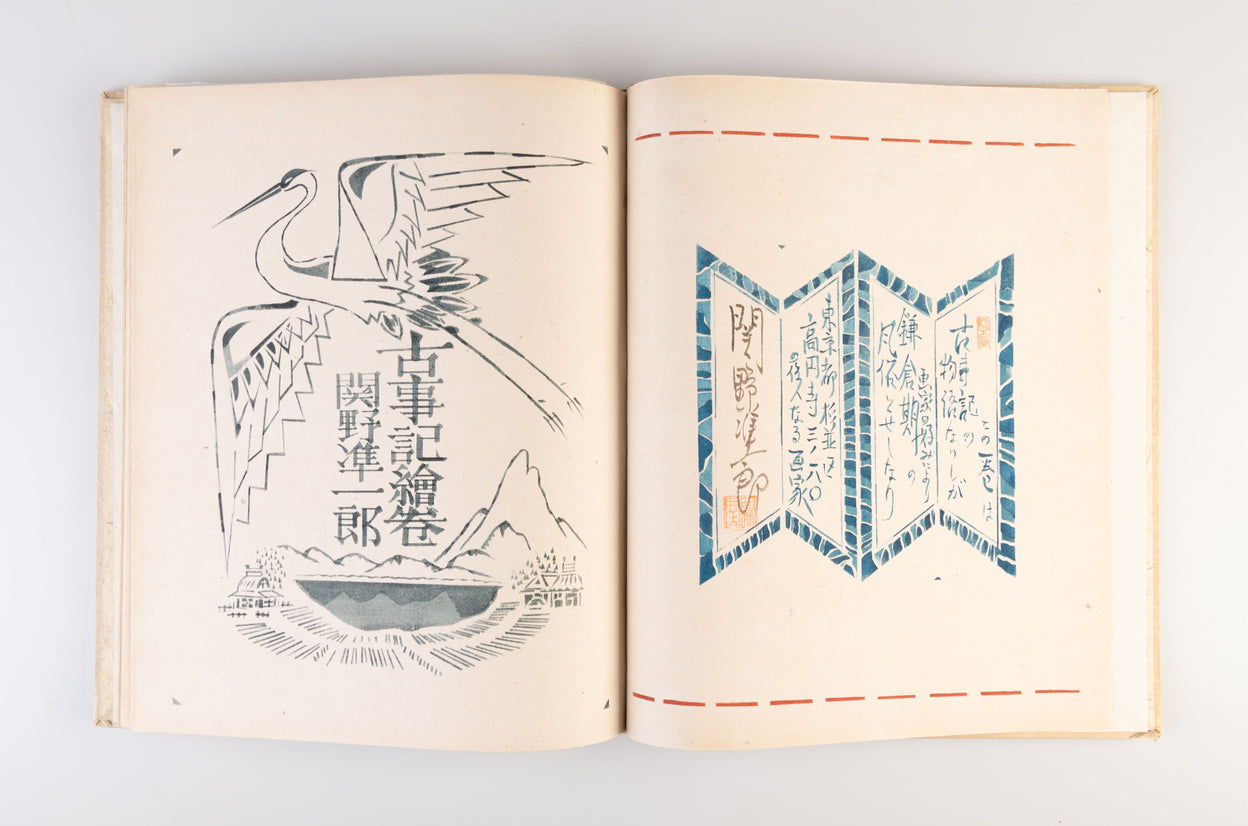 古事記繪卷
関野凖一郎
この一巻は
古事記の
物語なりしが
画家の好みにより
鎌倉期の
風俗とせしなり
東京都杉並区
高円寺三ノ一八〇
の住人なる画家
関野凖一郎